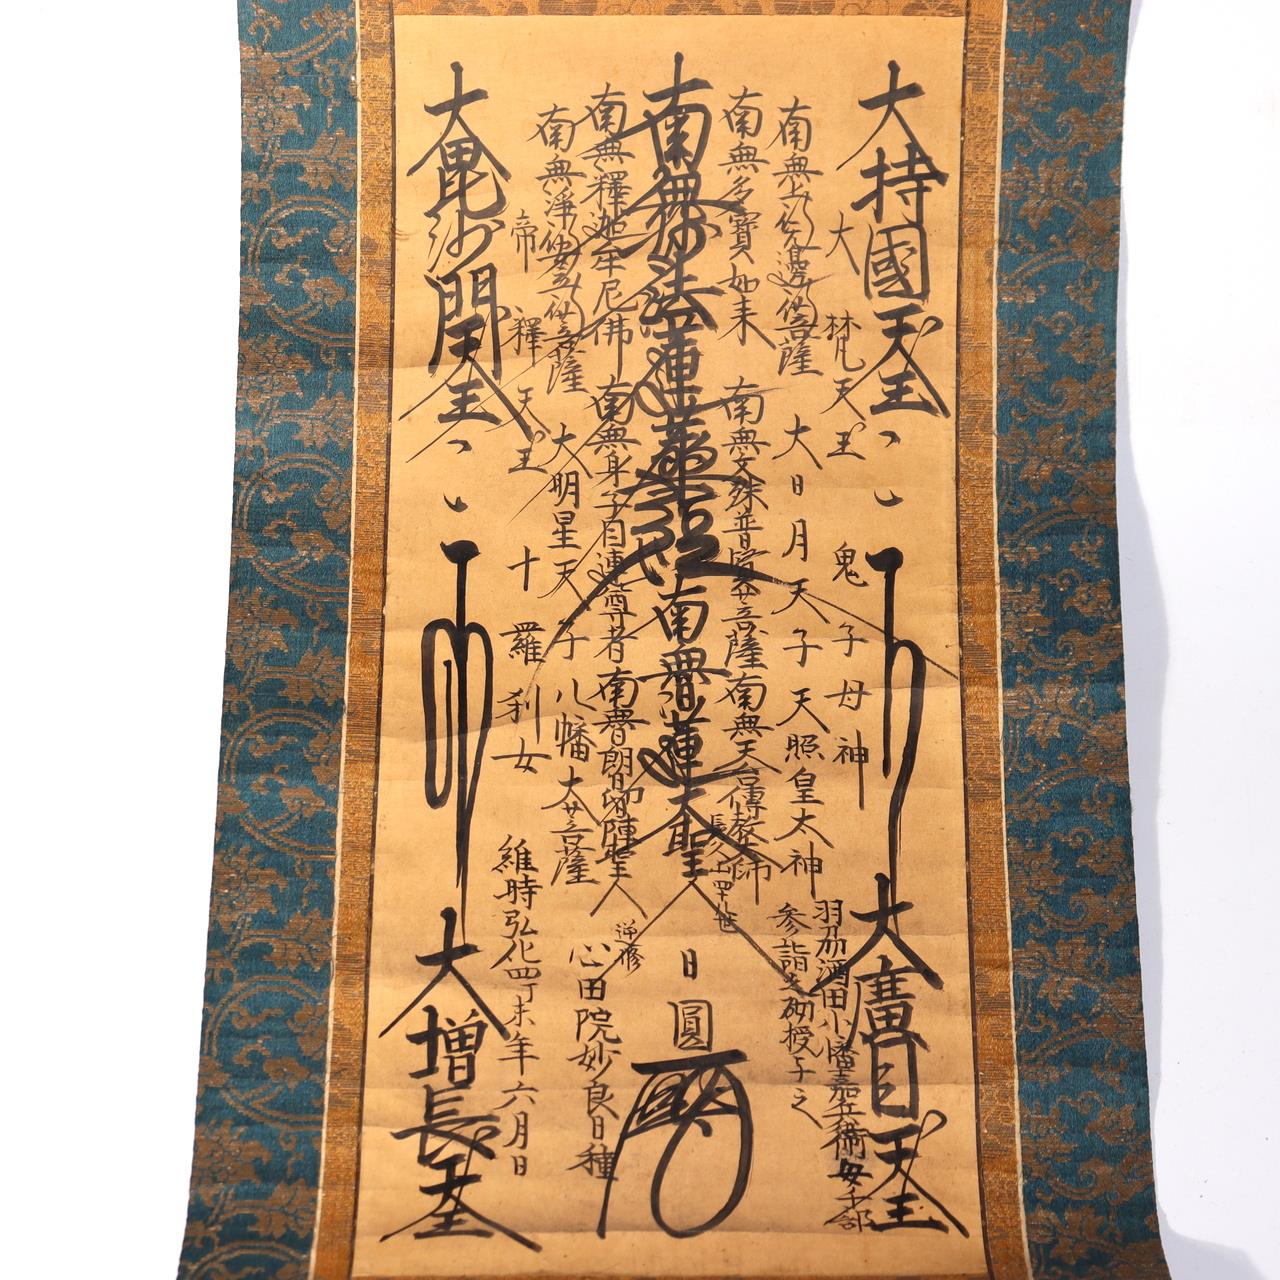 大持國天王
大梵天王
鬼子母神
羽州酒田小幡嘉兵衛
南無上行無邊行菩薩
大日月天子
天照皇太神
參詣之砌授与之
南無多寶如来
南無文殊普賢等菩薩
南無天台傳教大師
長久山四十世
大廣目天王
南無妙法蓮華經
南無日蓮大聖人
日圓
南無釋迦牟尼佛
南無身子目連等尊者
南無日朗日像聖人
逆修
心田院妙良日種
南無淨行安立行菩薩
大明星天子
八幡大菩薩
帝釋天王
十羅刹女
維時弘化四丁未年六月日
大毘沙門天王
大増長天王